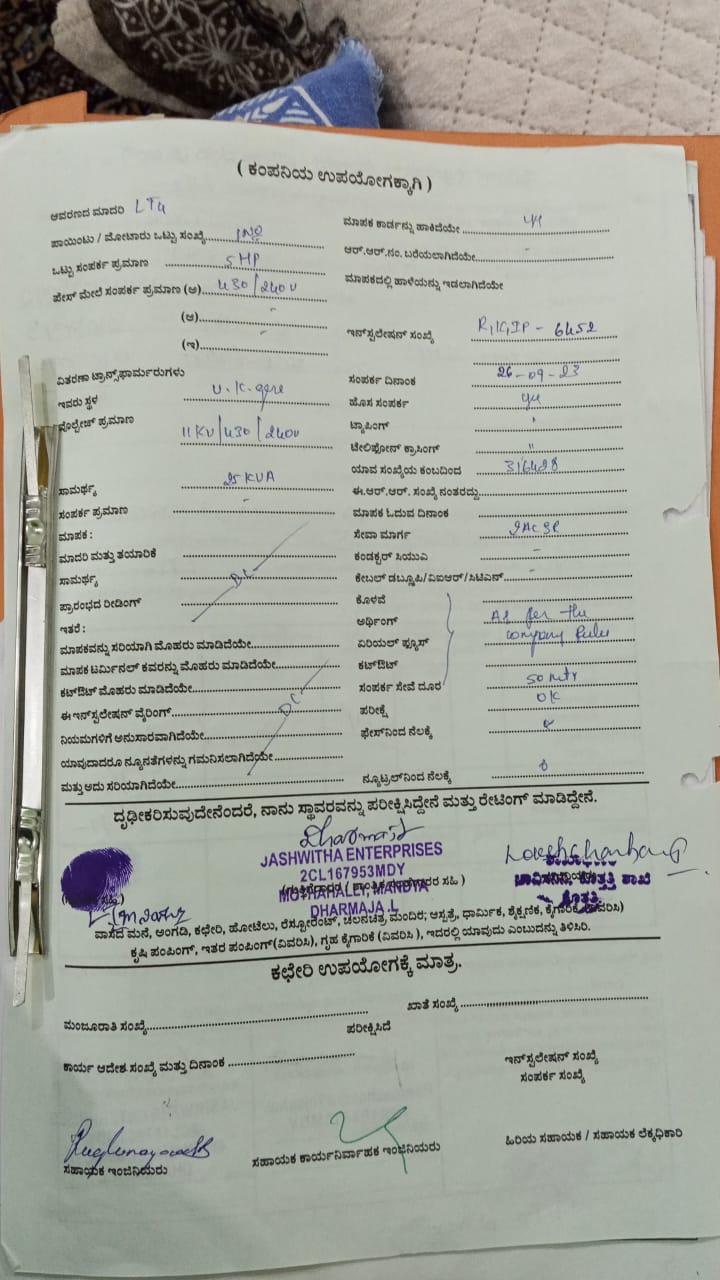 ( ಕಂಪನಿಯ ಉಪಯೋಗಕ್ಕಾಗಿ )
ಆವರಣದ ಮಾದರಿ LT4
ಪಾಯಿಂಟು / ಮೋಟಾರು ಒಟ್ಟು ಸಂಖ್ಯೆ 1No
ಒಟ್ಟು ಸಂಪರ್ಕ ಪ್ರಮಾಣ 5HP
ಪೇಸ್ ಮೇಲೆ ಸಂಪರ್ಕ ಪ್ರಮಾಣ (ಅ) 430/240V
(ಆ) -
(ಇ) -
ವಿತರಣಾ ಟ್ರಾನ್ಸ್‌ಫಾರ್ಮರುಗಳು
ಇವರು ಸ್ಥಳ U.K.gere
ವೋಲ್ಟೇಜ್ ಪ್ರಮಾಣ 11KV/430/240V
ಸಾಮರ್ಥ್ಯ 25KVA
ಸಂಪರ್ಕ ಪ್ರಮಾಣ -
ಮಾಪಕ :
ಮಾದರಿ ಮತ್ತು ತಯಾರಿಕೆ
ಸಾಮರ್ಥ್ಯ
ಪ್ರಾರಂಭದ ರೀಡಿಂಗ್
ಇತರೆ :
ಮಾಪಕವನ್ನು ಸರಿಯಾಗಿ ಮೊಹರು ಮಾಡಿದೆಯೇ
ಮಾಪಕ ಟರ್ಮಿನಲ್ ಕವರನ್ನು ಮೊಹರು ಮಾಡಿದೆಯೇ
ಕಟ್‌ಔಟ್ ಮೊಹರು ಮಾಡಿದೆಯೇ
ಈ ಇನ್‌ಸ್ಟಲೇಷನ್ ವೈರಿಂಗ್
ನಿಯಮಗಳಿಗೆ ಅನುಸಾರವಾಗಿದೆಯೇ
ಯಾವುದಾದರೂ ನ್ಯೂನತೆಗಳನ್ನು ಗಮನಿಸಲಾಗಿದೆಯೇ
ಮತ್ತು ಅದು ಸರಿಯಾಗಿದೆಯೇ
ಮಾಪಕ ಕಾರ್ಡನ್ನು ಹಾಕಿದೆಯೇ
ಆರ್.ಆರ್.ನಂ. ಬರೆಯಲಾಗಿದೆಯೇ -
ಮಾಪಕದಲ್ಲಿ ಹಾಳೆಯನ್ನು ಇಡಲಾಗಿದೆಯೇ
ಇನ್‌ಸ್ಟಲೇಷನ್ ಸಂಖ್ಯೆ 6452
ಸಂಪರ್ಕ ದಿನಾಂಕ 26-09-23
ಹೊಸ ಸಂಪರ್ಕ
ಟ್ಯಾಪಿಂಗ್
ಟೆಲಿಫೋನ್ ಕ್ರಾಸಿಂಗ್ "
ಯಾವ ಸಂಖ್ಯೆಯ ಕಂಬದಿಂದ 316428
ಈ.ಆರ್.ಆರ್. ಸಂಖ್ಯೆ ನಂತರದ್ದು
ಮಾಪಕ ಓದುವ ದಿನಾಂಕ
ಸೇವಾ ಮಾರ್ಗ
ಕಂಡಕ್ಟರ್ ಸಿಯುವಿ -
ಕೇಬಲ್ ಡಬ್ಲ್ಯೂಪಿ/ವಿಐಆರ್/ಸಿಟಿಎಸ್ -
ಕೊಳವೆ
ಅರ್ಥಿಂಗ್ As per the
ಏರಿಯಲ್ ಫ್ಯೂಸ್ Company Rules
ಕಟ್‌ಔಟ್
ಸಂಪರ್ಕ ಸೇವೆ ದೂರ 50 mtr
ಪರೀಕ್ಷೆ OK
ಫೇಸ್‌ನಿಂದ ನೆಲಕ್ಕೆ
ನ್ಯೂಟ್ರಲ್‌ನಿಂದ ನೆಲಕ್ಕೆ
ದೃಢೀಕರಿಸುವುದೇನೆಂದರೆ, ನಾನು ಸ್ಥಾವರವನ್ನು ಪರೀಕ್ಷಿಸಿದ್ದೇನೆ ಮತ್ತು ರೇಟಿಂಗ್ ಮಾಡಿದ್ದೇನೆ.
JASHWITHA ENTERPRISES
2CL167953MDY
MUTHAHALLI, MANDYA
DHARMAJA .L
ವಾಸದ ಮನೆ, ಅಂಗಡಿ, ಕಛೇರಿ, ಹೋಟೆಲು, ರೆಸ್ಟೋರೆಂಟ್, ಚಲನಚಿತ್ರ ಮಂದಿರ; ಆಸ್ಪತ್ರೆ, ಧಾರ್ಮಿಕ, ಶೈಕ್ಷಣಿಕ, ಕೈಗಾರಿಕೆ
ಕೃಷಿ ಪಂಪಿಂಗ್, ಇತರ ಪಂಪಿಂಗ್(ವಿವರಿಸಿ), ಗೃಹ ಕೈಗಾರಿಕೆ (ವಿವರಿಸಿ ), ಇದರಲ್ಲಿ ಯಾವುದು ಎಂಬುದನ್ನು ತಿಳಿಸಿರಿ.
ಕಛೇರಿ ಉಪಯೋಗಕ್ಕೆ ಮಾತ್ರ.
ಮಂಜೂರಾತಿ ಸಂಖ್ಯೆ
ಖಾತೆ ಸಂಖ್ಯೆ
ಪರೀಕ್ಷಿಸಿದೆ
ಕಾರ್ಯ ಆದೇಶ ಸಂಖ್ಯೆ ಮತ್ತು ದಿನಾಂಕ
ಇನ್‌ಸ್ಟಲೇಷನ್ ಸಂಖ್ಯೆ
ಸಂಪರ್ಕ ಸಂಖ್ಯೆ
ಸಹಾಯಕ ಇಂಜಿನಿಯರು
ಸಹಾಯಕ ಕಾರ್ಯನಿರ್ವಾಹಕ ಇಂಜಿನಿಯರು
ಹಿರಿಯ ಸಹಾಯಕ / ಸಹಾಯಕ ಲೆಕ್ಕಧಿಕಾರಿ